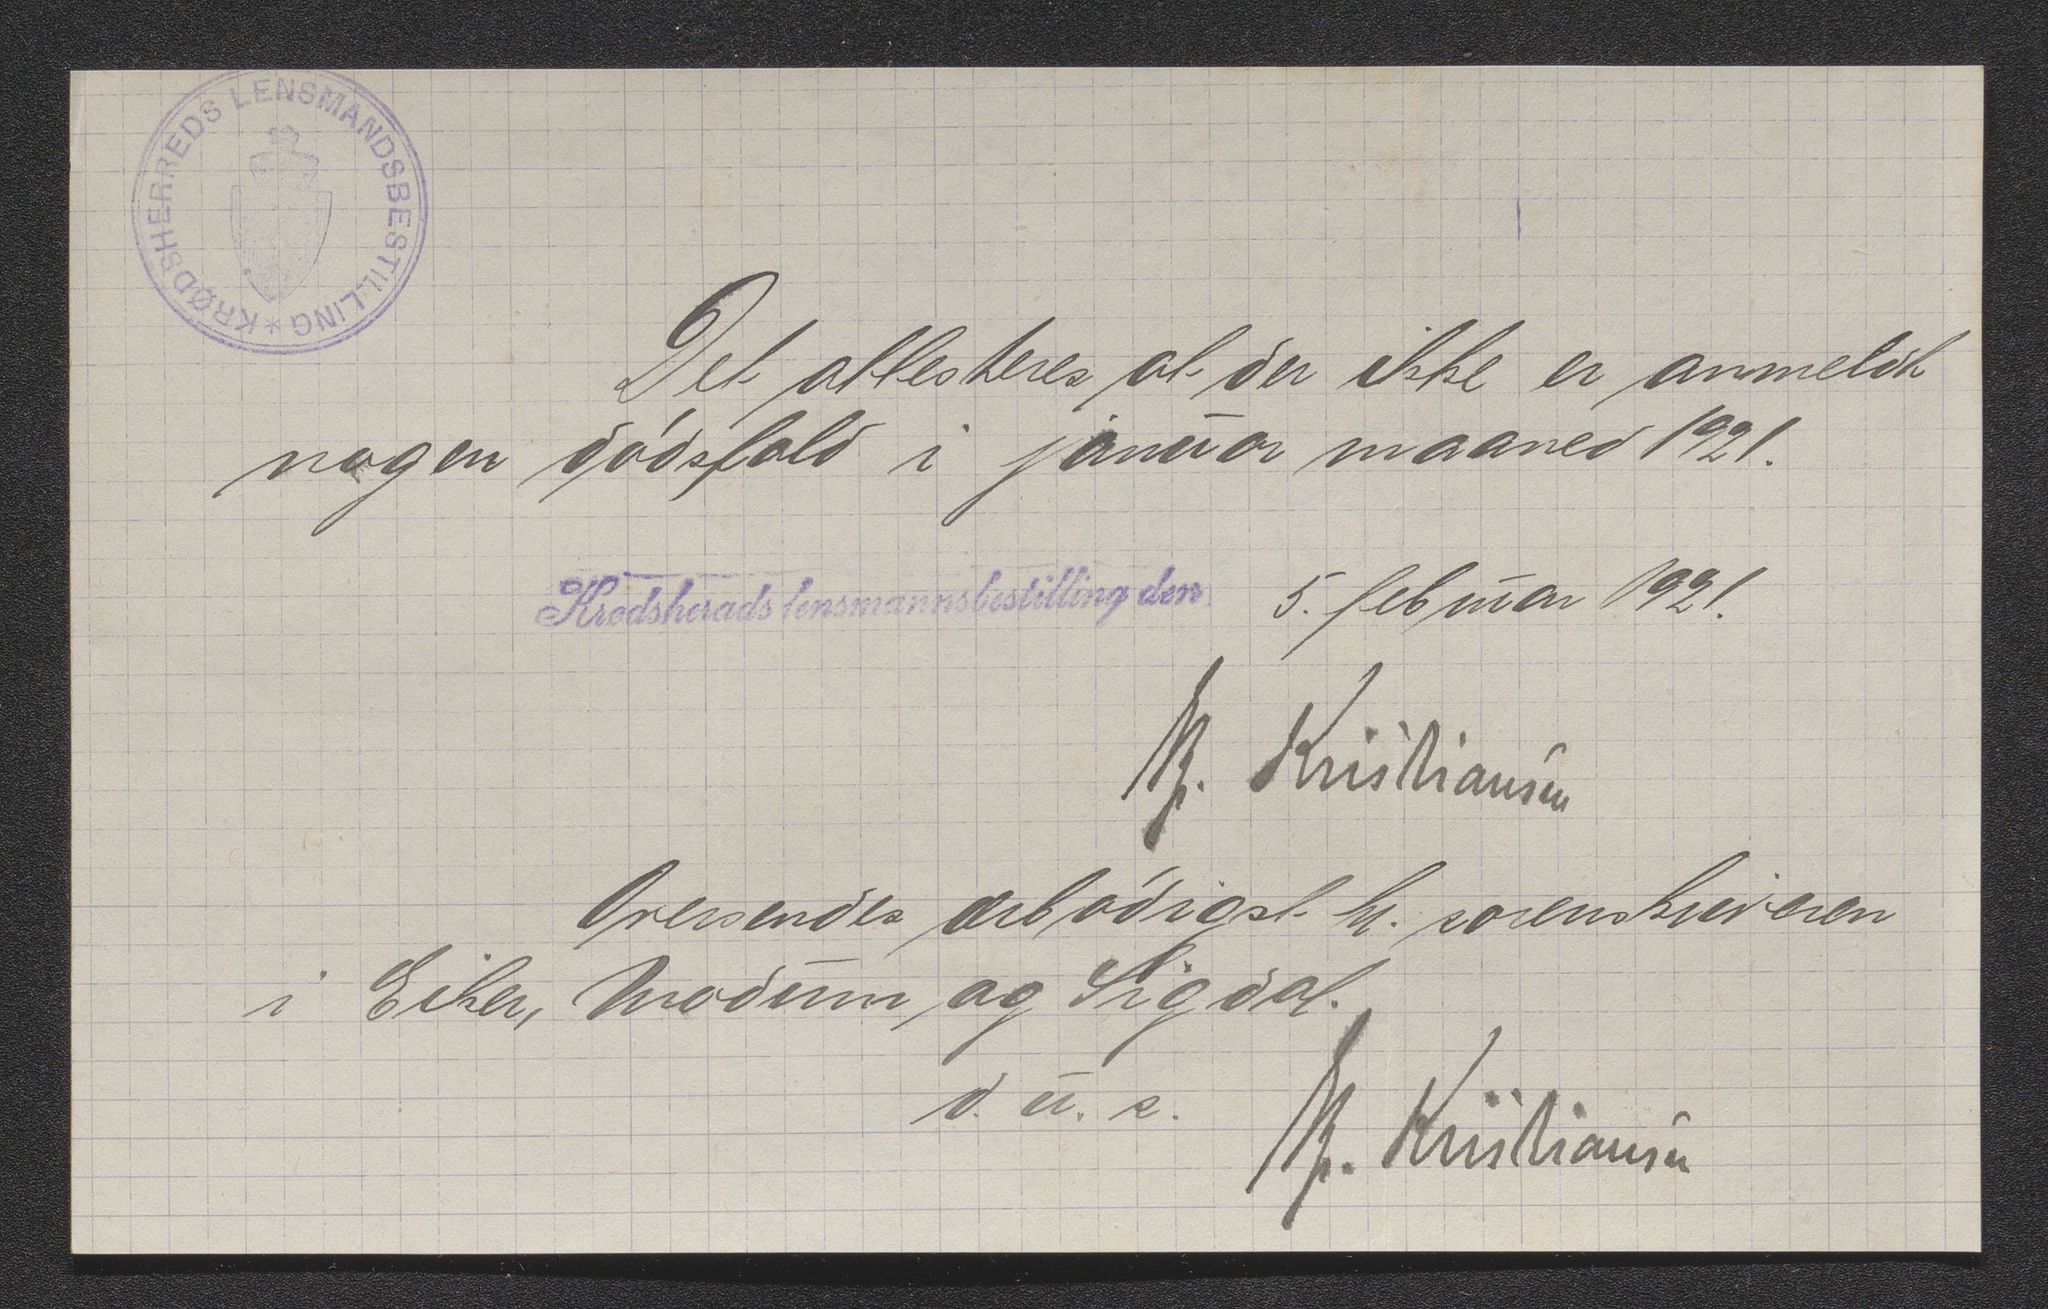 KRØDSHERREDS LENSMANDSBESTILLING *
Det attesteres at der ikke er anmeldt
nogen dødsfald i januar maaned 1921.
Krødsherads lensmannsbestilling den 5. februar 1921.
Kristiansen
Oversendes ærbødigst hr. sorenskriveren
i Eiker, Modum og Sigdal.
d. u. s.
Kristiansen